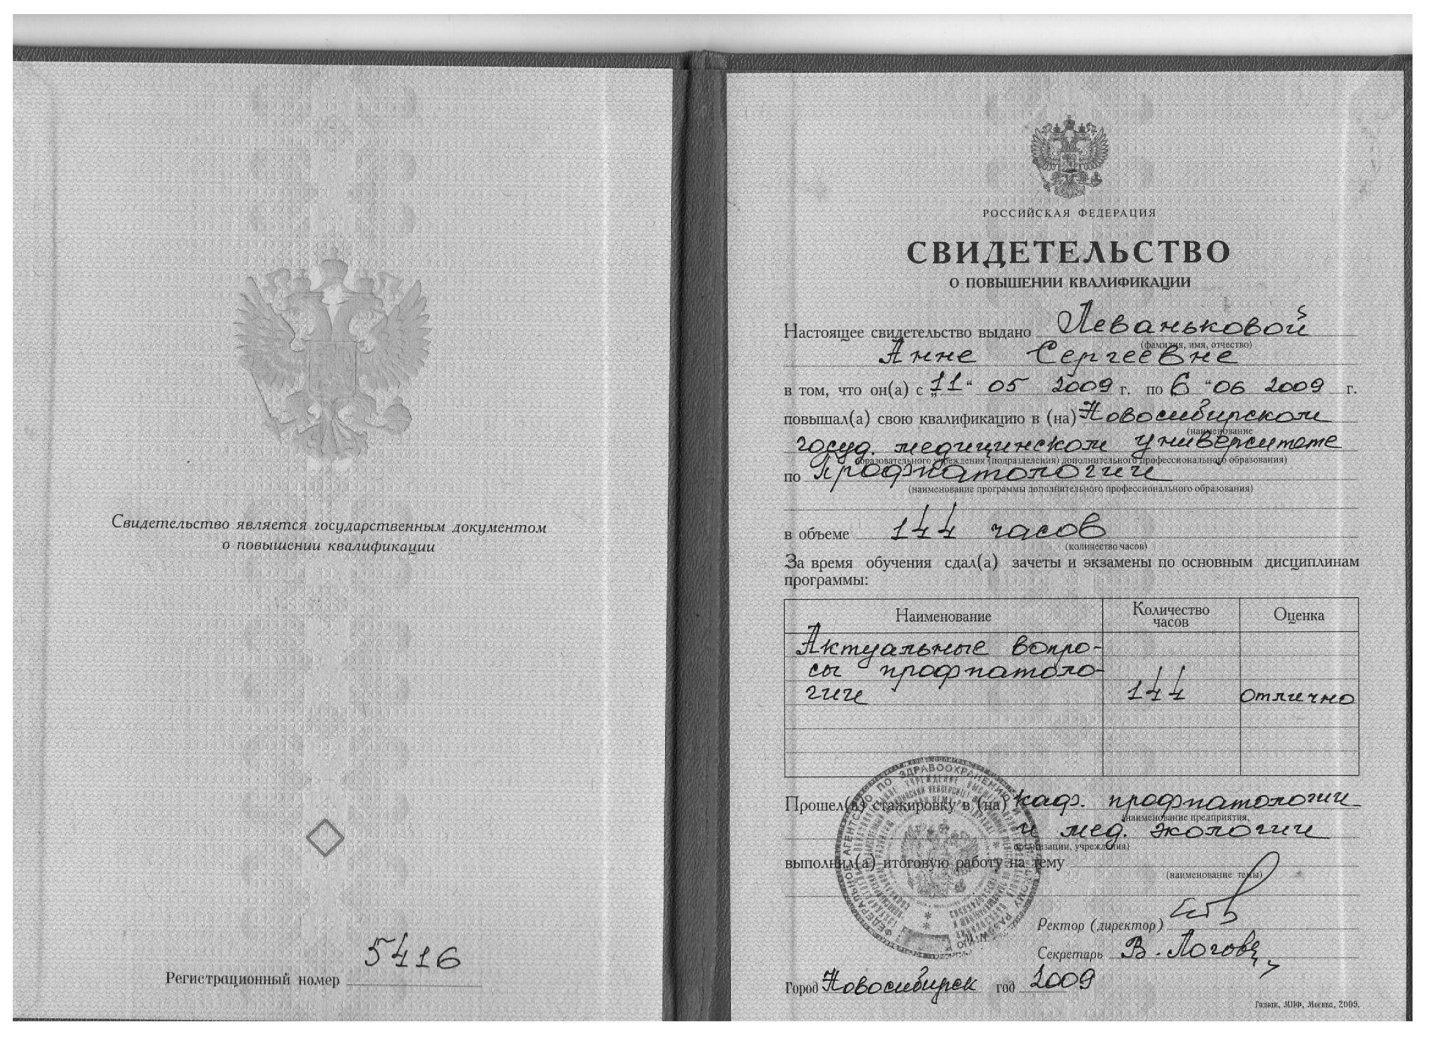 Свидетельство является государственным документом
о повышении квалификации
Регистрационный номер 5416
РОССИЙСКАЯ ФЕДЕРАЦИЯ
СВИДЕТЕЛЬСТВО
О ПОВЫШЕНИИ КВАЛИФИКАЦИИ
Настоящее свидетельство выдано Леваньковой
(фамилия, имя, отчество)
Анне Сергеевне
в том, что он(а) с „11“ 05 2009 г. по 6 “06 2009 г.
повышал(а) свою квалификацию в (на) Новосибирском
(наименование
госуд. медицинском университете
образовательного учреждения (подразделения) дополнительного профессионального образования)
по Профпатологии
(наименование программы дополнительного профессионального образования)
в объеме 144 часов
(количество часов)
За время обучения сдал(а) зачеты и экзамены по основным дисциплинам
программы:
Наименование Количество часов Оценка
Актуальные вопро-
сы профпатоло-
гии 144 отлично
Прошел(а) стажировку в (на) каф. профпатологии
(наименование предприятия,
и мед. экологии
организации, учреждения)
выполнил(а) итоговую работу на тему
(наименование темы)
ФЕДЕРАЛЬНОЕ АГЕНТСТВО ПО ЗДРАВООХРАНЕНИЮ И СОЦИАЛЬНОМУ РАЗВИТИЮ
Ректор (директор)
Секретарь В. Логов
Город Новосибирск год 2009
Гознак, МПФ, Москва, 2009.